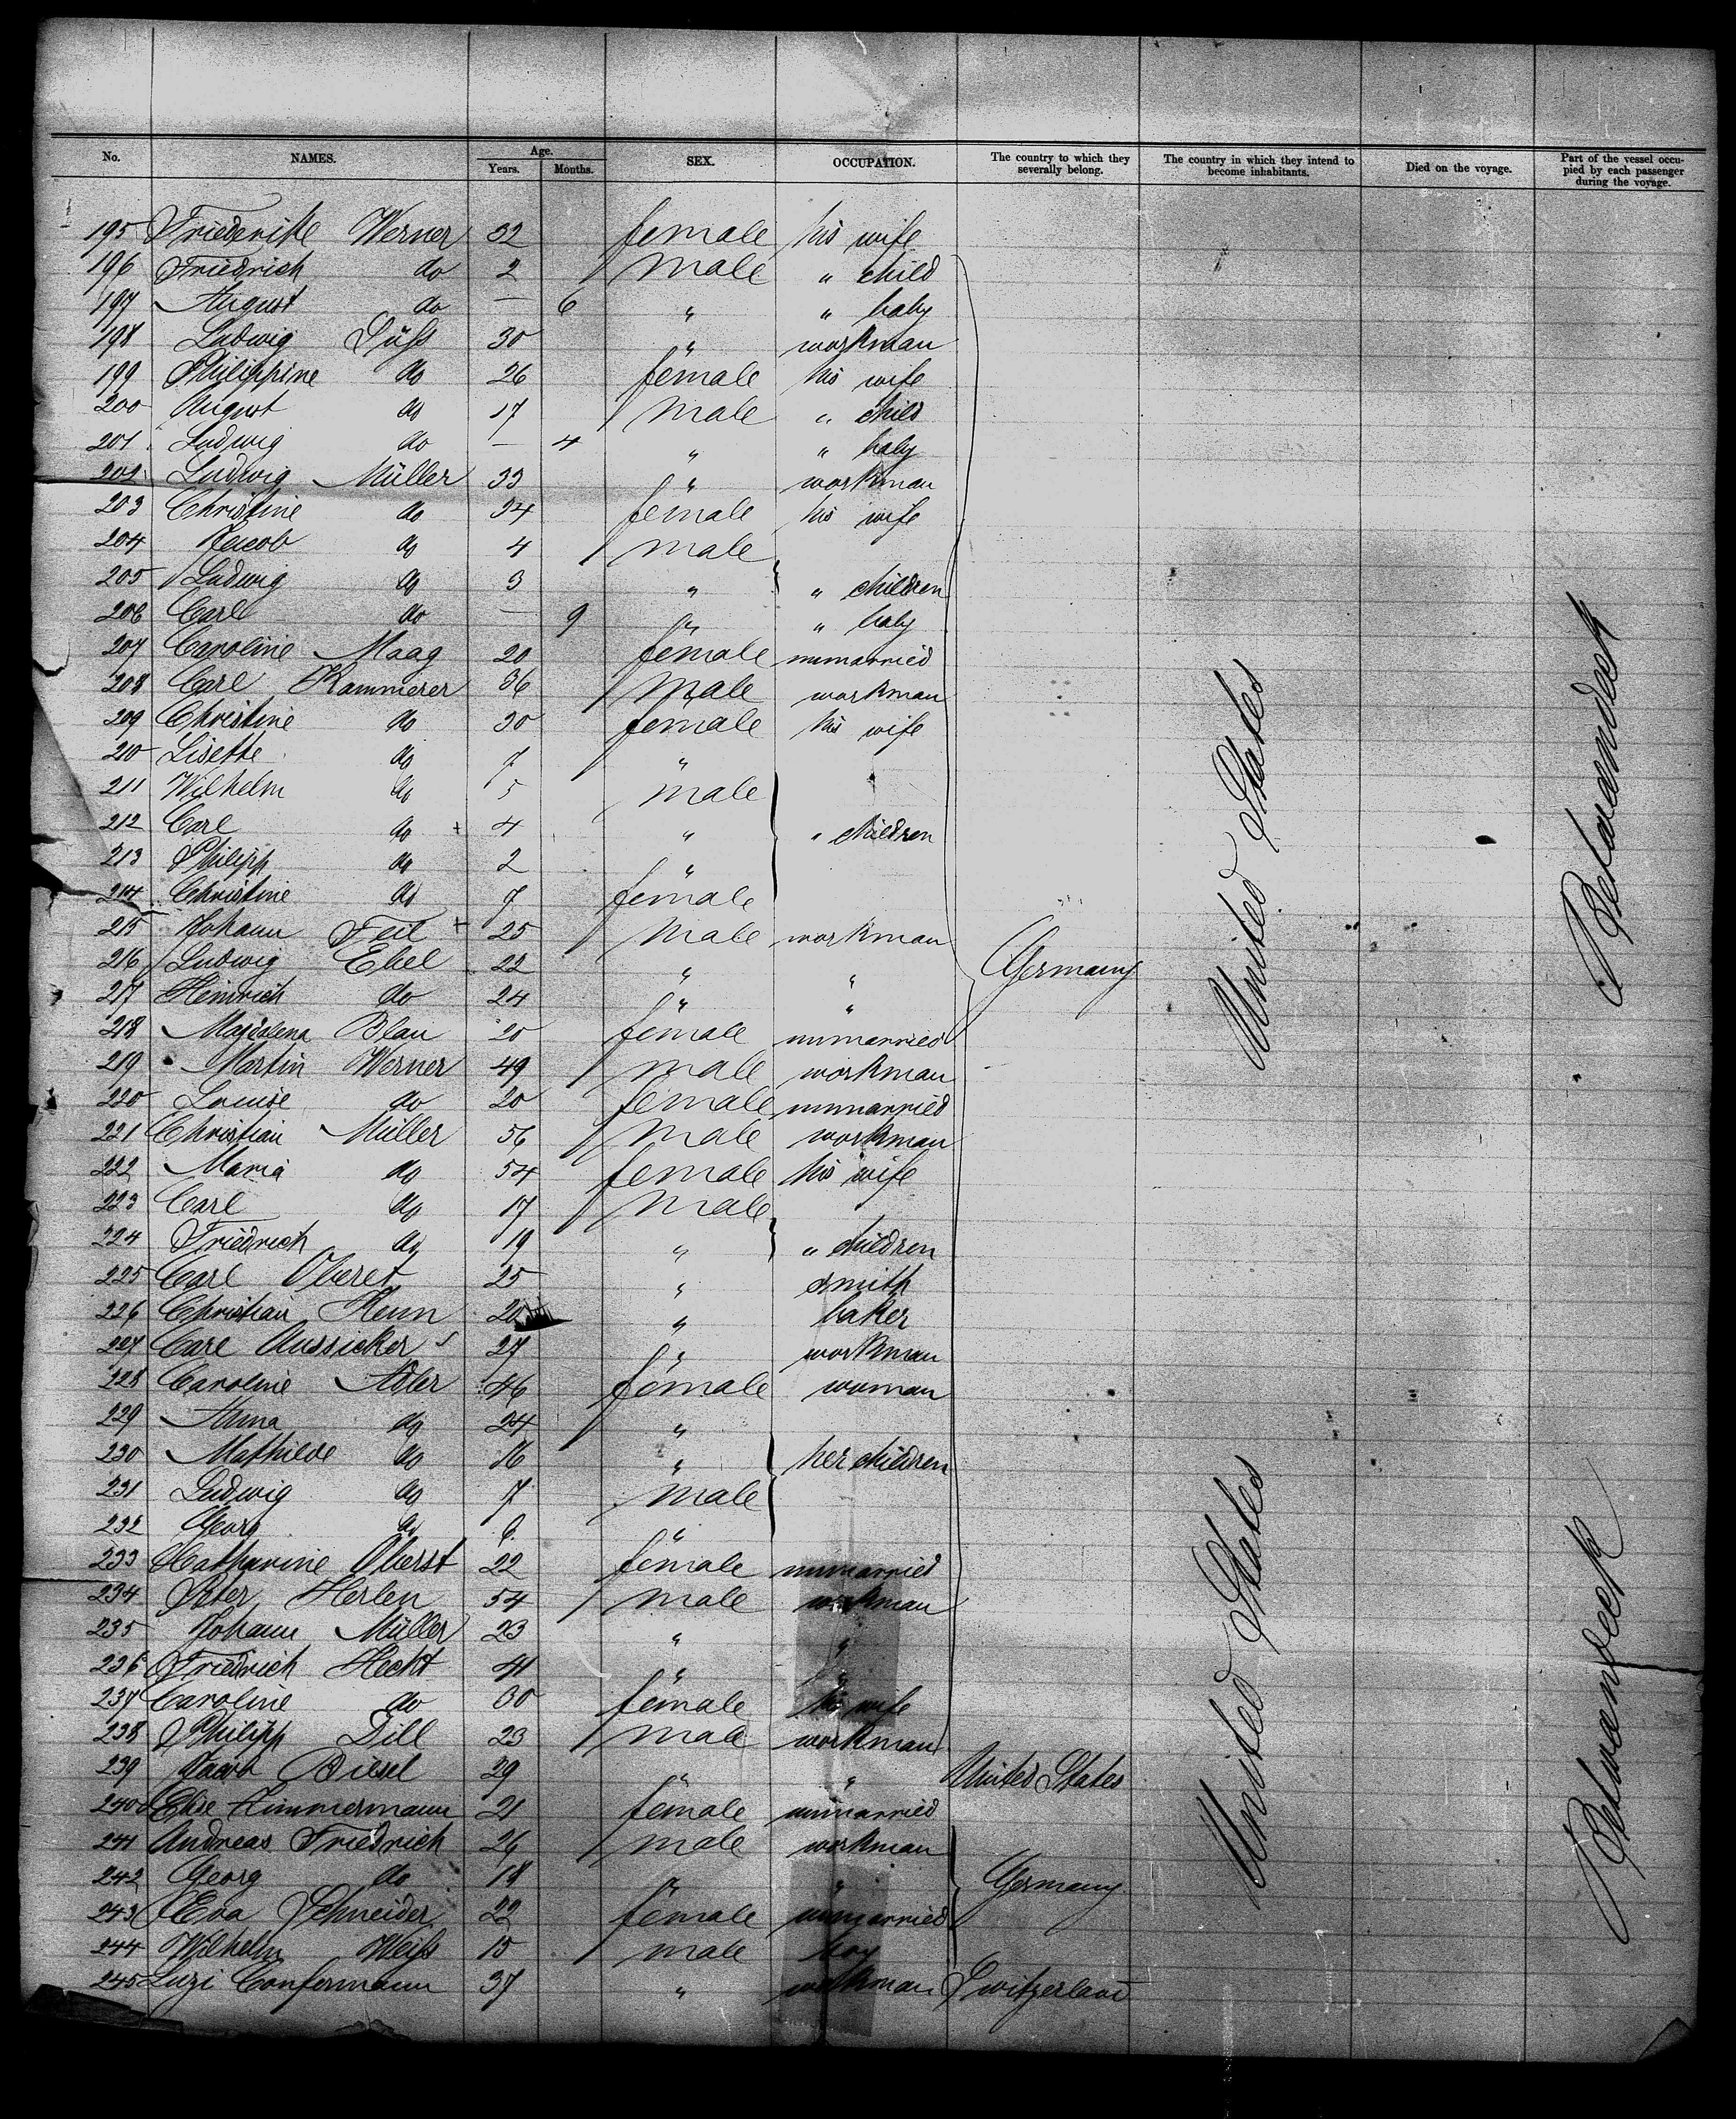 No. NAMES. Age. Years. Months. SEX. OCCUPATION. The country to which they severally belong. The country in which they intend to become inhabitants. Died on the voyage. Part of the vessel occupied by each passenger during the voyage.
195 Friederike Werner 32 female his wife
196 Friedrich do 2 male " child
197 August do — 6 " " baby
198 Ludwig Süß 30 " workman
199 Philippine do 26 female his wife
200 August do 17 male " child
201 Ludwig do — 4 " " baby
202 Ludwig Müller 33 " workman
203 Christine do 34 female his wife
204 Jacob do 4 male
205 Ludwig do 3 " " children
206 Carl do — 9 " " baby
207 Caroline Maag 20 female unmarried
208 Carl Kammerer 36 male workman
209 Christine do 30 female his wife
210 Lisette do 7 "
211 Wilhelm do 5 male
212 Carl do 4 " " children
213 Philipp do 2 "
214 Christine do 7 female
215 Johann Feil 25 male workman
216 Ludwig Ebel 22 " " Germany United States Betweendeck
217 Heinrich do 24 " "
218 Magdalena Blau 20 female unmarried
219 Martin Werner 49 male workman
220 Louise do 20 female unmarried
221 Christian Müller 56 male workman
222 Maria do 54 female his wife
223 Carl do 17 male
224 Friedrich do 19 " " children
225 Carl Oberst 25 " smith
226 Christian Henn 20 " baker
227 Carl Aussicker 27 " workman
228 Caroline Adler 46 female woman
229 Anna do 24 "
230 Mathilde do 16 " her children
231 Ludwig do 7 male
232 Georg do 6 "
233 Catharine Oberst 22 female unmarried
234 Peter Herlen 54 male workman
235 Johann Müller 23 " "
236 Friedrich Hecht 41 " "
237 Caroline do 30 female his wife
238 Philipp Dill 23 male workman
239 Jacob Biesel 29 " " United States
240 Elise Zimmermann 21 female unmarried
241 Andreas Friedrich 26 male workman
242 Georg do 18 " " Germany United States Betweendeck
243 Eva Schneider 22 female unmarried
244 Wilhelm Weiß 15 male boy
245 Luzi Confermann 37 " workman Switzerland